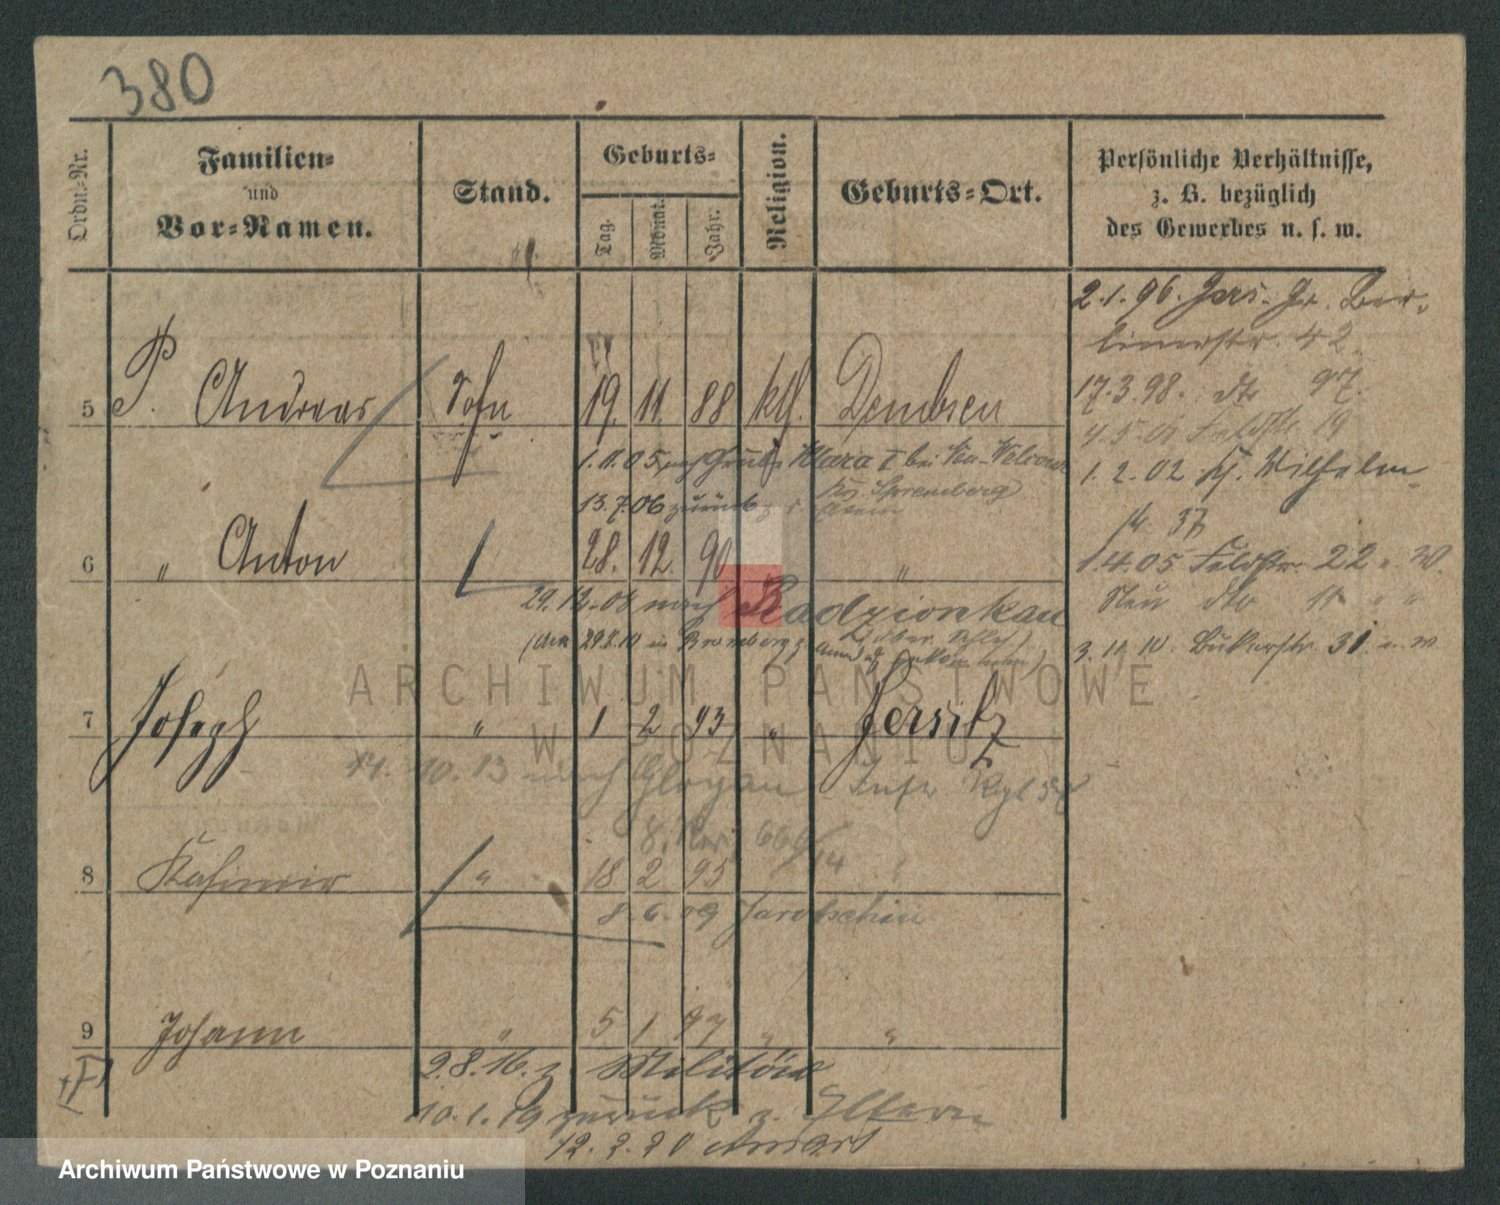 380
Ordn.-Nr.
Familien-
und
Vor-Namen.
Stand.
Geburts-
Tag.
Monat.
Jahr.
Religion.
Geburts-Ort.
Persönliche Verhältnisse,
z. B. bezüglich
des Gewerbes u. s. w.
2.1.96. Jers. Gr. Ber-
linerstr. 42
17.3.98. dto 97.
5 P. Andreas Sohn 19. 11. 88 kth. Dembsen
4.5.01 Feldstr. 19
1.11.05 nach Grube Klara I bei Neu-Welzow
1.2.02 Kg. Wilhelm-
Krs. Spremberg
13.7.06 zurück z. Eltern
14 37
6 " Anton 28. 12. 90 "
1.4.05 Feldstr. 22
29.12.08 nach Radzionkau
Neu dto 11 " "
(Ober Schles.)
29.8.10 in Bromberg
3.11.10. Bukerstr. 31
7 Joseph " 1 2 93 " Jersitz
14.10.13 nach Glogau Inftr. Rgt 58
8 Kasimir " 18 2 95 "
8.6.09 Jarotschin
9 Johann " 5 1 97 " "
2.8.16. z. Militär
10.1.19 zurück z. Eltern
12.2.20
ARCHIWUM PAŃSTWOWE
W POZNANIU
Archiwum Państwowe w Poznaniu